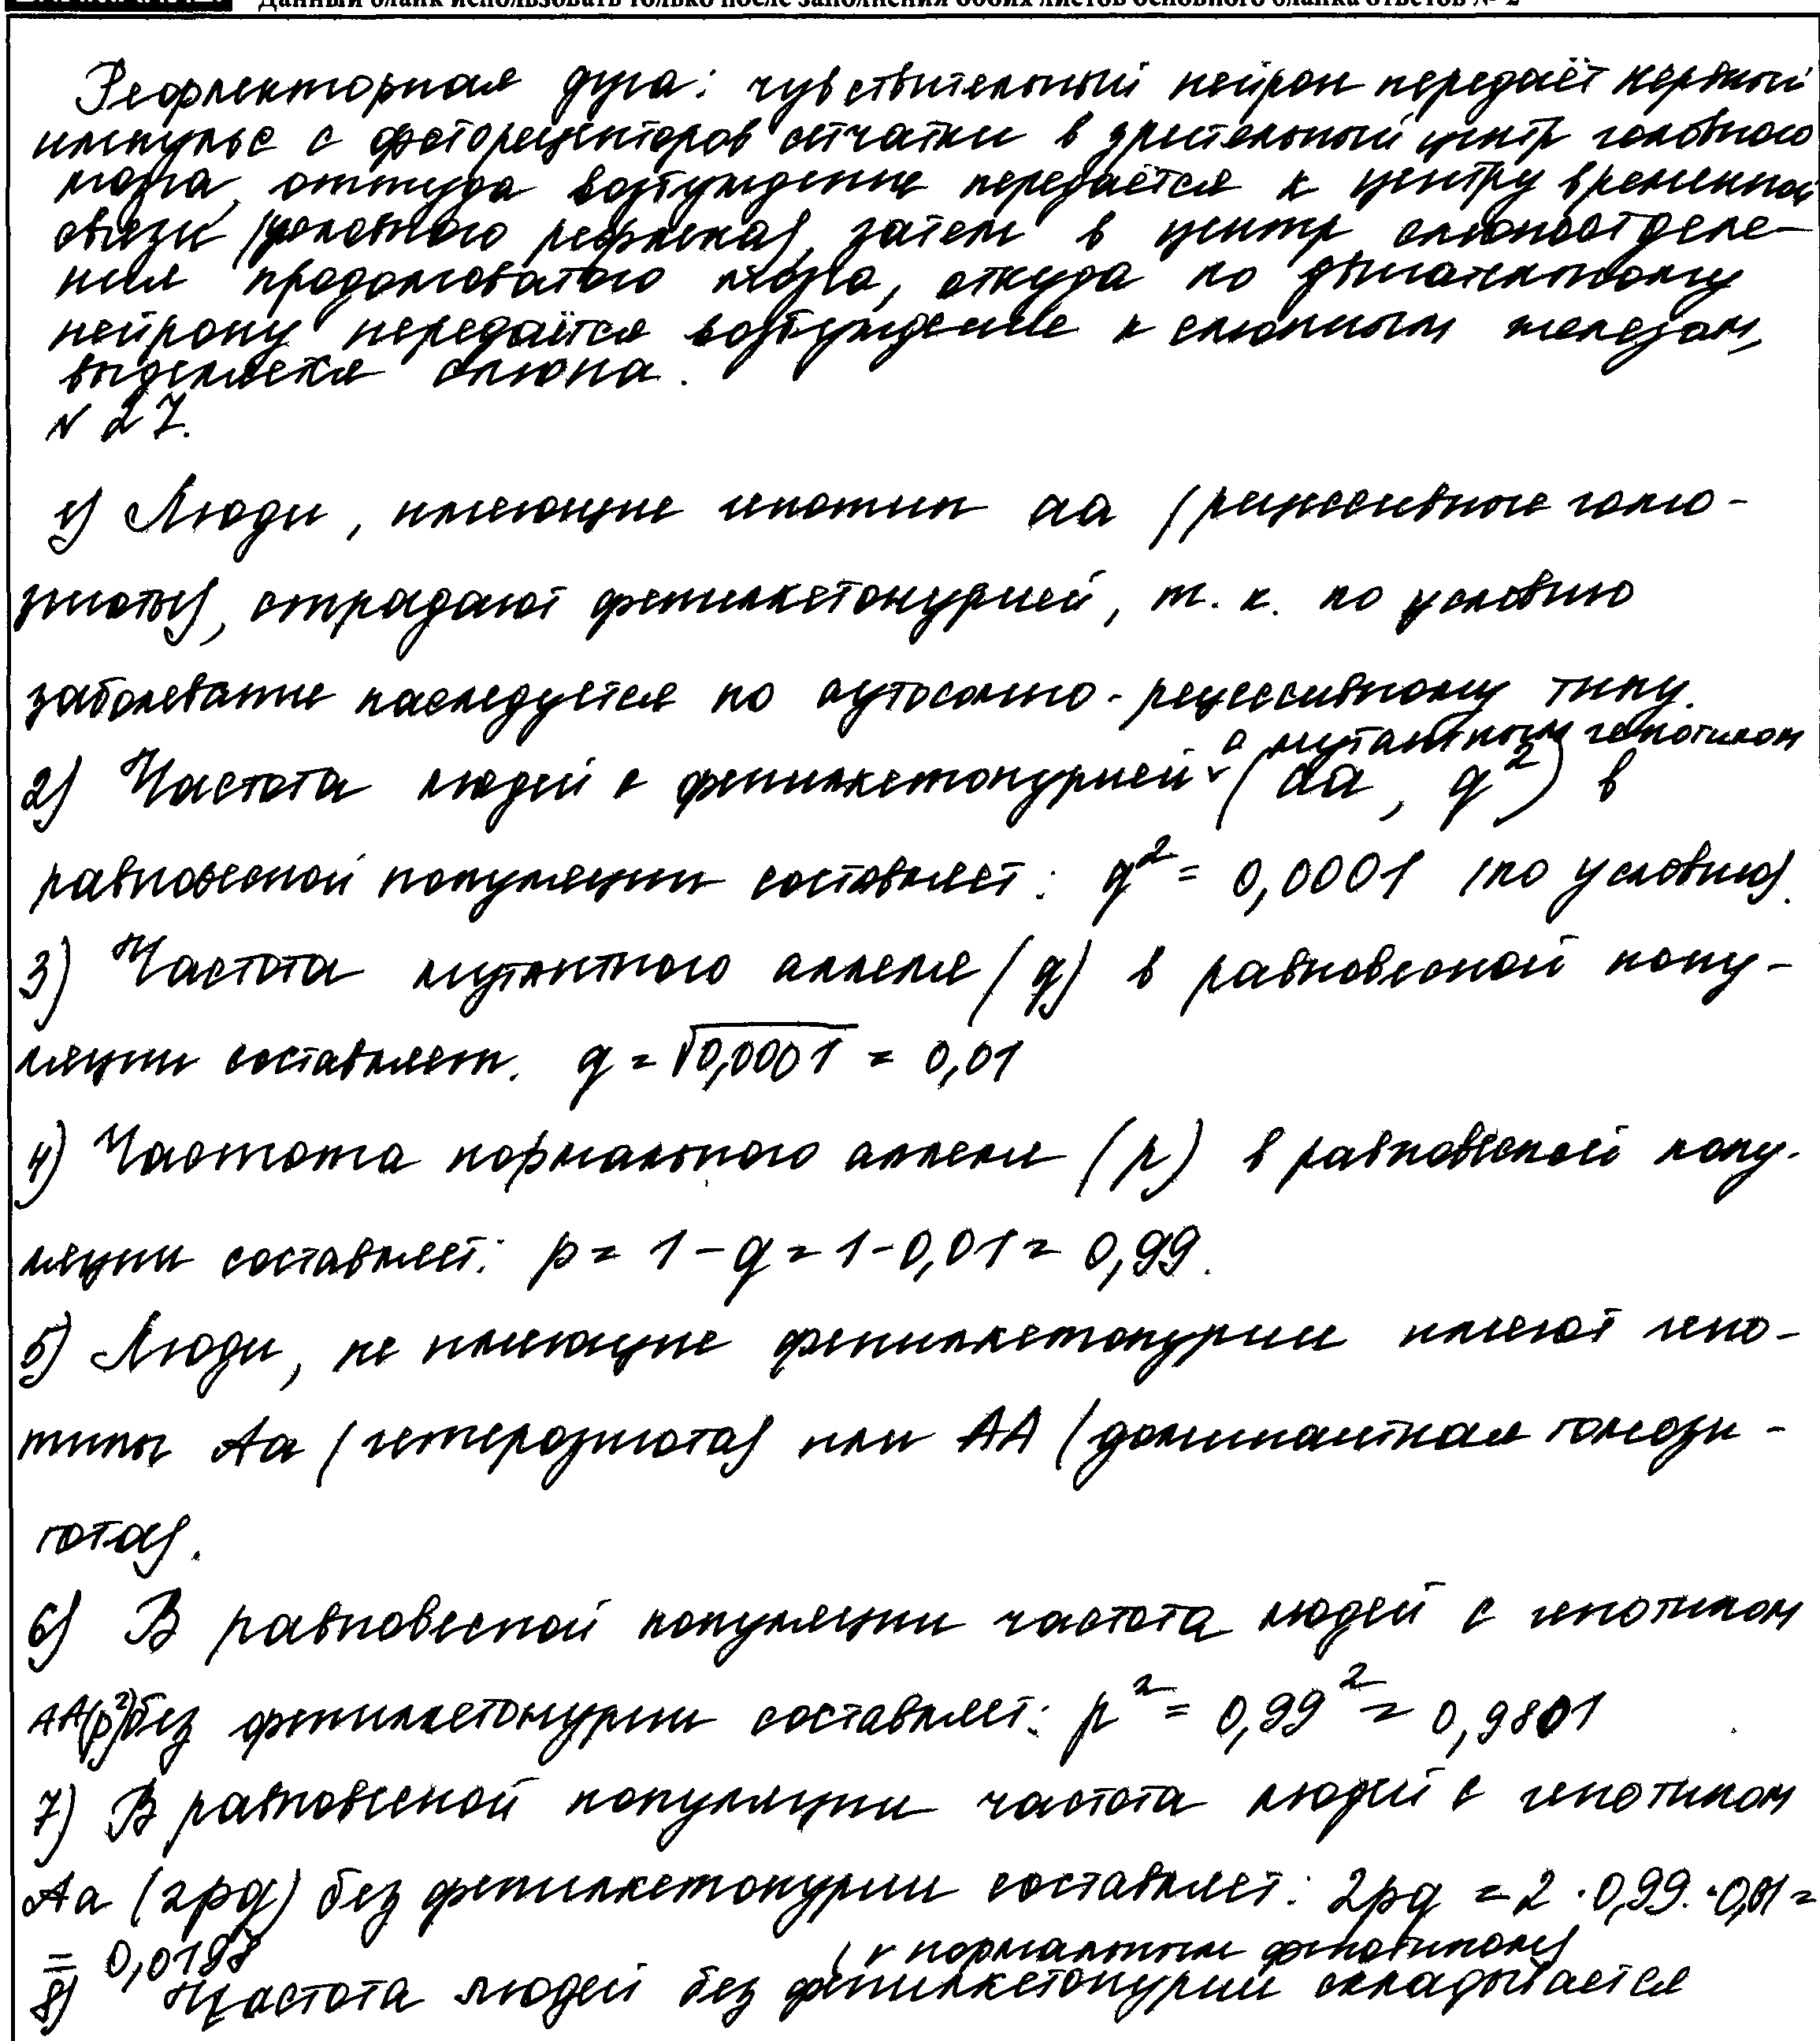 Данный бланк использовать только после заполнения обоих листов основного бланка ответов № 2
Рефлекторная дуга: чувствительный нейрон передаёт нервный
импульс с фоторецепторов сетчатки в зрительный центр головного
мозга, оттуда возбуждение передаётся к центру временной
связи (условного рефлекса), затем в центр слюноотделе-
ния продолговатого мозга, откуда по двигательному
нейрону передаётся возбуждение к слюнным железам,
выделяется слюна.
№ 27.
1) Люди, имеющие генотип aa (рецессивные гомо-
зиготы), страдают фенилкетонурией, т. к. по условию
заболевание наследуется по аутосомно-рецессивному типу.
с мутантным генотипом
2) Частота людей с фенилкетонурией (aa, q²) в
равновесной популяции составляет: q² = 0,0001 (по условию).
3) Частота мутантного аллеля (q) в равновесной попу-
ляции составляет. q = √0,0001 = 0,01
4) Частота нормального аллеля (p) в равновесной попу-
ляции составляет: p = 1 - q = 1 - 0,01 = 0,99.
5) Люди, не имеющие фенилкетонурии имеют гено-
типы Aa (гетерозигота) или AA (доминантная гомози-
гота).
6) В равновесной популяции частота людей с генотипом
AA(p²) без фенилкетонурии составляет: p² = 0,99² = 0,9801
7) В равновесной популяции частота людей с генотипом
Aa (2pq) без фенилкетонурии составляет: 2pq = 2 · 0,99 · 0,01 =
= 0,0198
(с нормальным фенотипом)
8) Частота людей без фенилкетонурии складывается